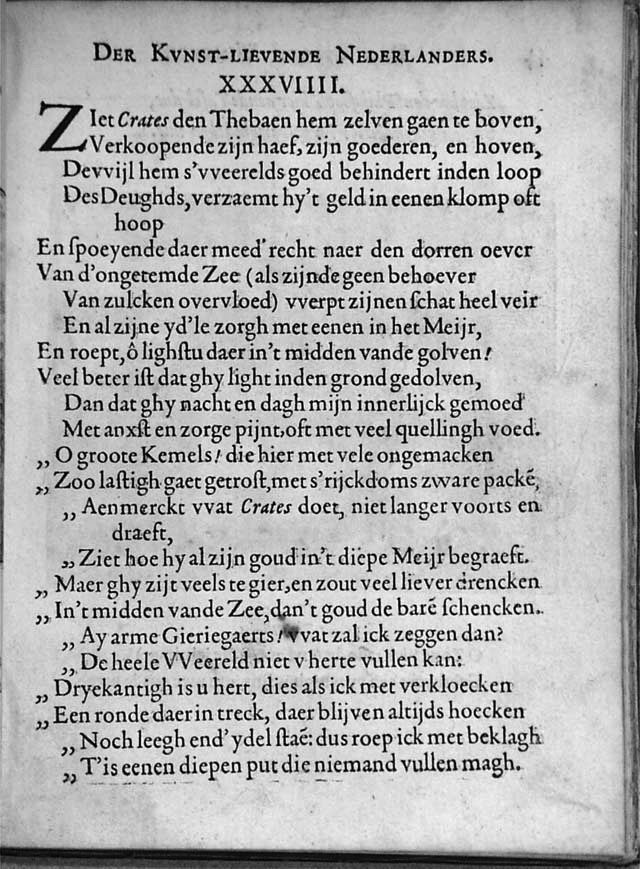 DER KVNST-LIEVENDE NEDERLANDERS.
XXXVIIII.
ZIet Crates den Thebaen hem zelven gaen te boven,
Verkoopende zijn haef, zijn goederen, en hoven,
Devvijl hem s'vveerelds goed behindert inden loop
Des Deughds, verzaemt hy't geld in eenen klomp oft
hoop
En ſpoeyende daer meed' recht naer den dorren oever
Van d'ongetemde Zee (als zijnde geen behoever
Van zulcken overvloed) vverpt zijnen ſchat heel veir
En al zijne yd'le zorgh met eenen in het Meijr,
En roept, ô lighſtu daer in't midden vande golven!
Veel beter iſt dat ghy light inden grond gedolven,
Dan dat ghy nacht en dagh mijn innerlijck gemoed
Met anxſt en zorge pijnt, oft met veel quellingh voed.
,, O groote Kemels! die hier met vele ongemacken
,, Zoo laſtigh gaet getroſt, met s'rijckdoms zware packē,
,, Aenmerckt vvat Crates doet, niet langer voorts en
draeft,
,, Ziet hoe hy al zijn goud in't diepe Meijr begraeft.
,, Maer ghy zijt veels te gier, en zout veel liever drencken
,, In't midden vande Zee, dan't goud de barē ſchencken.
,, Ay arme Gieriegaerts! vvat zal ick zeggen dan?
,, De heele VVeereld niet v herte vullen kan:
,, Dryekantigh is u hert, dies als ick met verkloecken
,, Een ronde daer in treck, daer blijven altijds hoecken
,, Noch leegh end' ydel ſtaē: dus roep ick met beklagh
,, T'is eenen diepen put die niemand vullen magh.